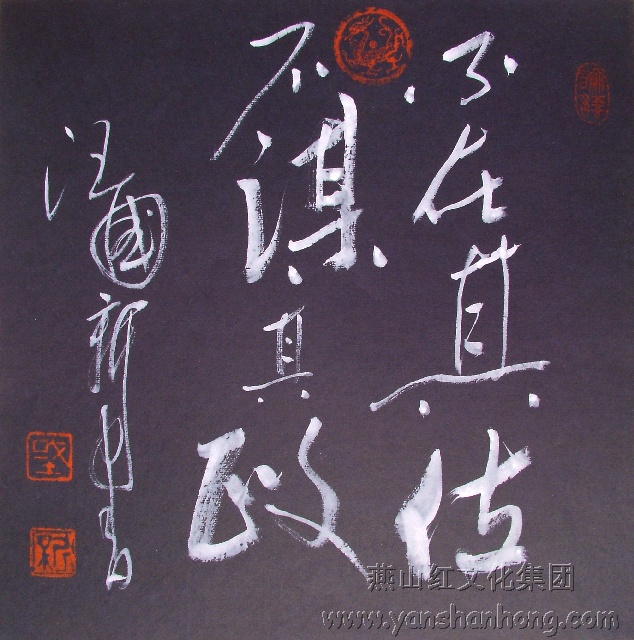 不在其位
不谋其政
汪國新
燕山红文化集团
www.yanshanhong.com